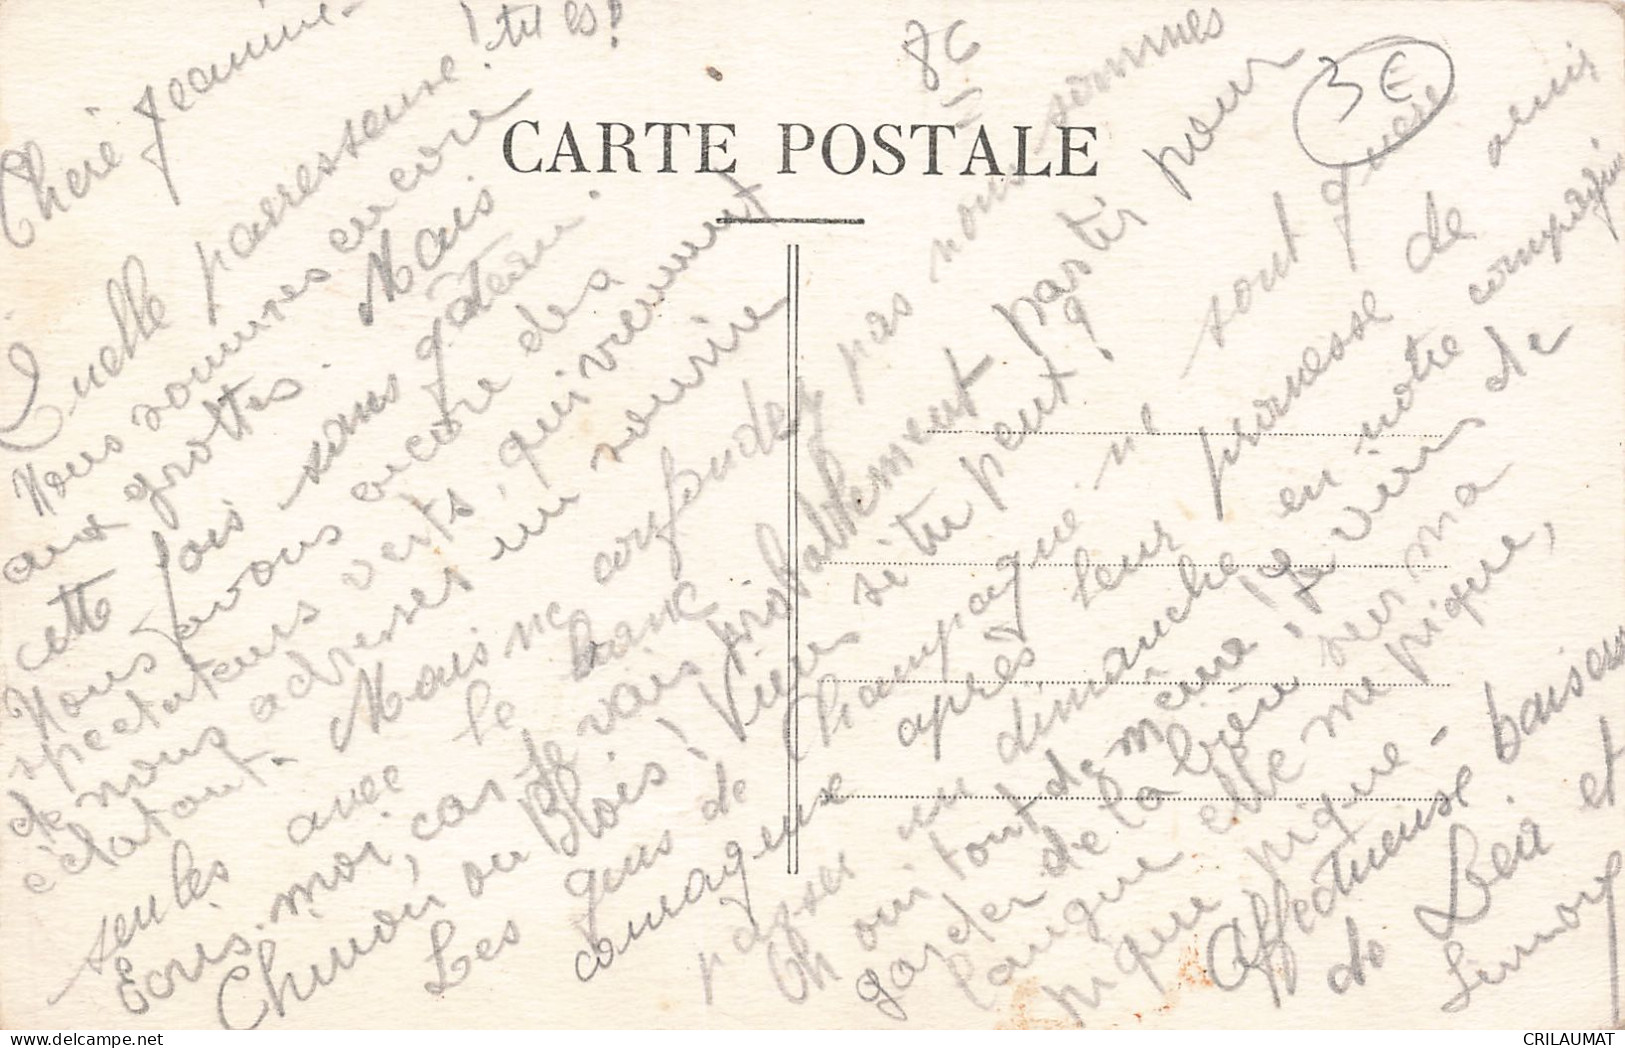 CARTE POSTALE
86
3€
Chère Jeannine -
Quelle paresseuse ! tu es !
Nous sommes encore
aux grottes. Mais
cette fois sans gâteau.
Nous avons encore des
spectateurs verts, qui viennent
de nous adresser un sourire
éclatant. Mais ne confondez pas nous sommes
seules avec le banc
Ecris-moi, car je vais probablement partir pour
Chinon ou Blois ! Viens si tu peux !
Les gens de Champagne n' sont guère
courageux après leur promesse de venir
passer un dimanche en notre compagnie
Oh oui tout de même ! Je viens de
garder de la sur ma
langue elle me pique,
pique pique -
Affectueuse baisers
de Léa et
Simone
CRILAUMAT